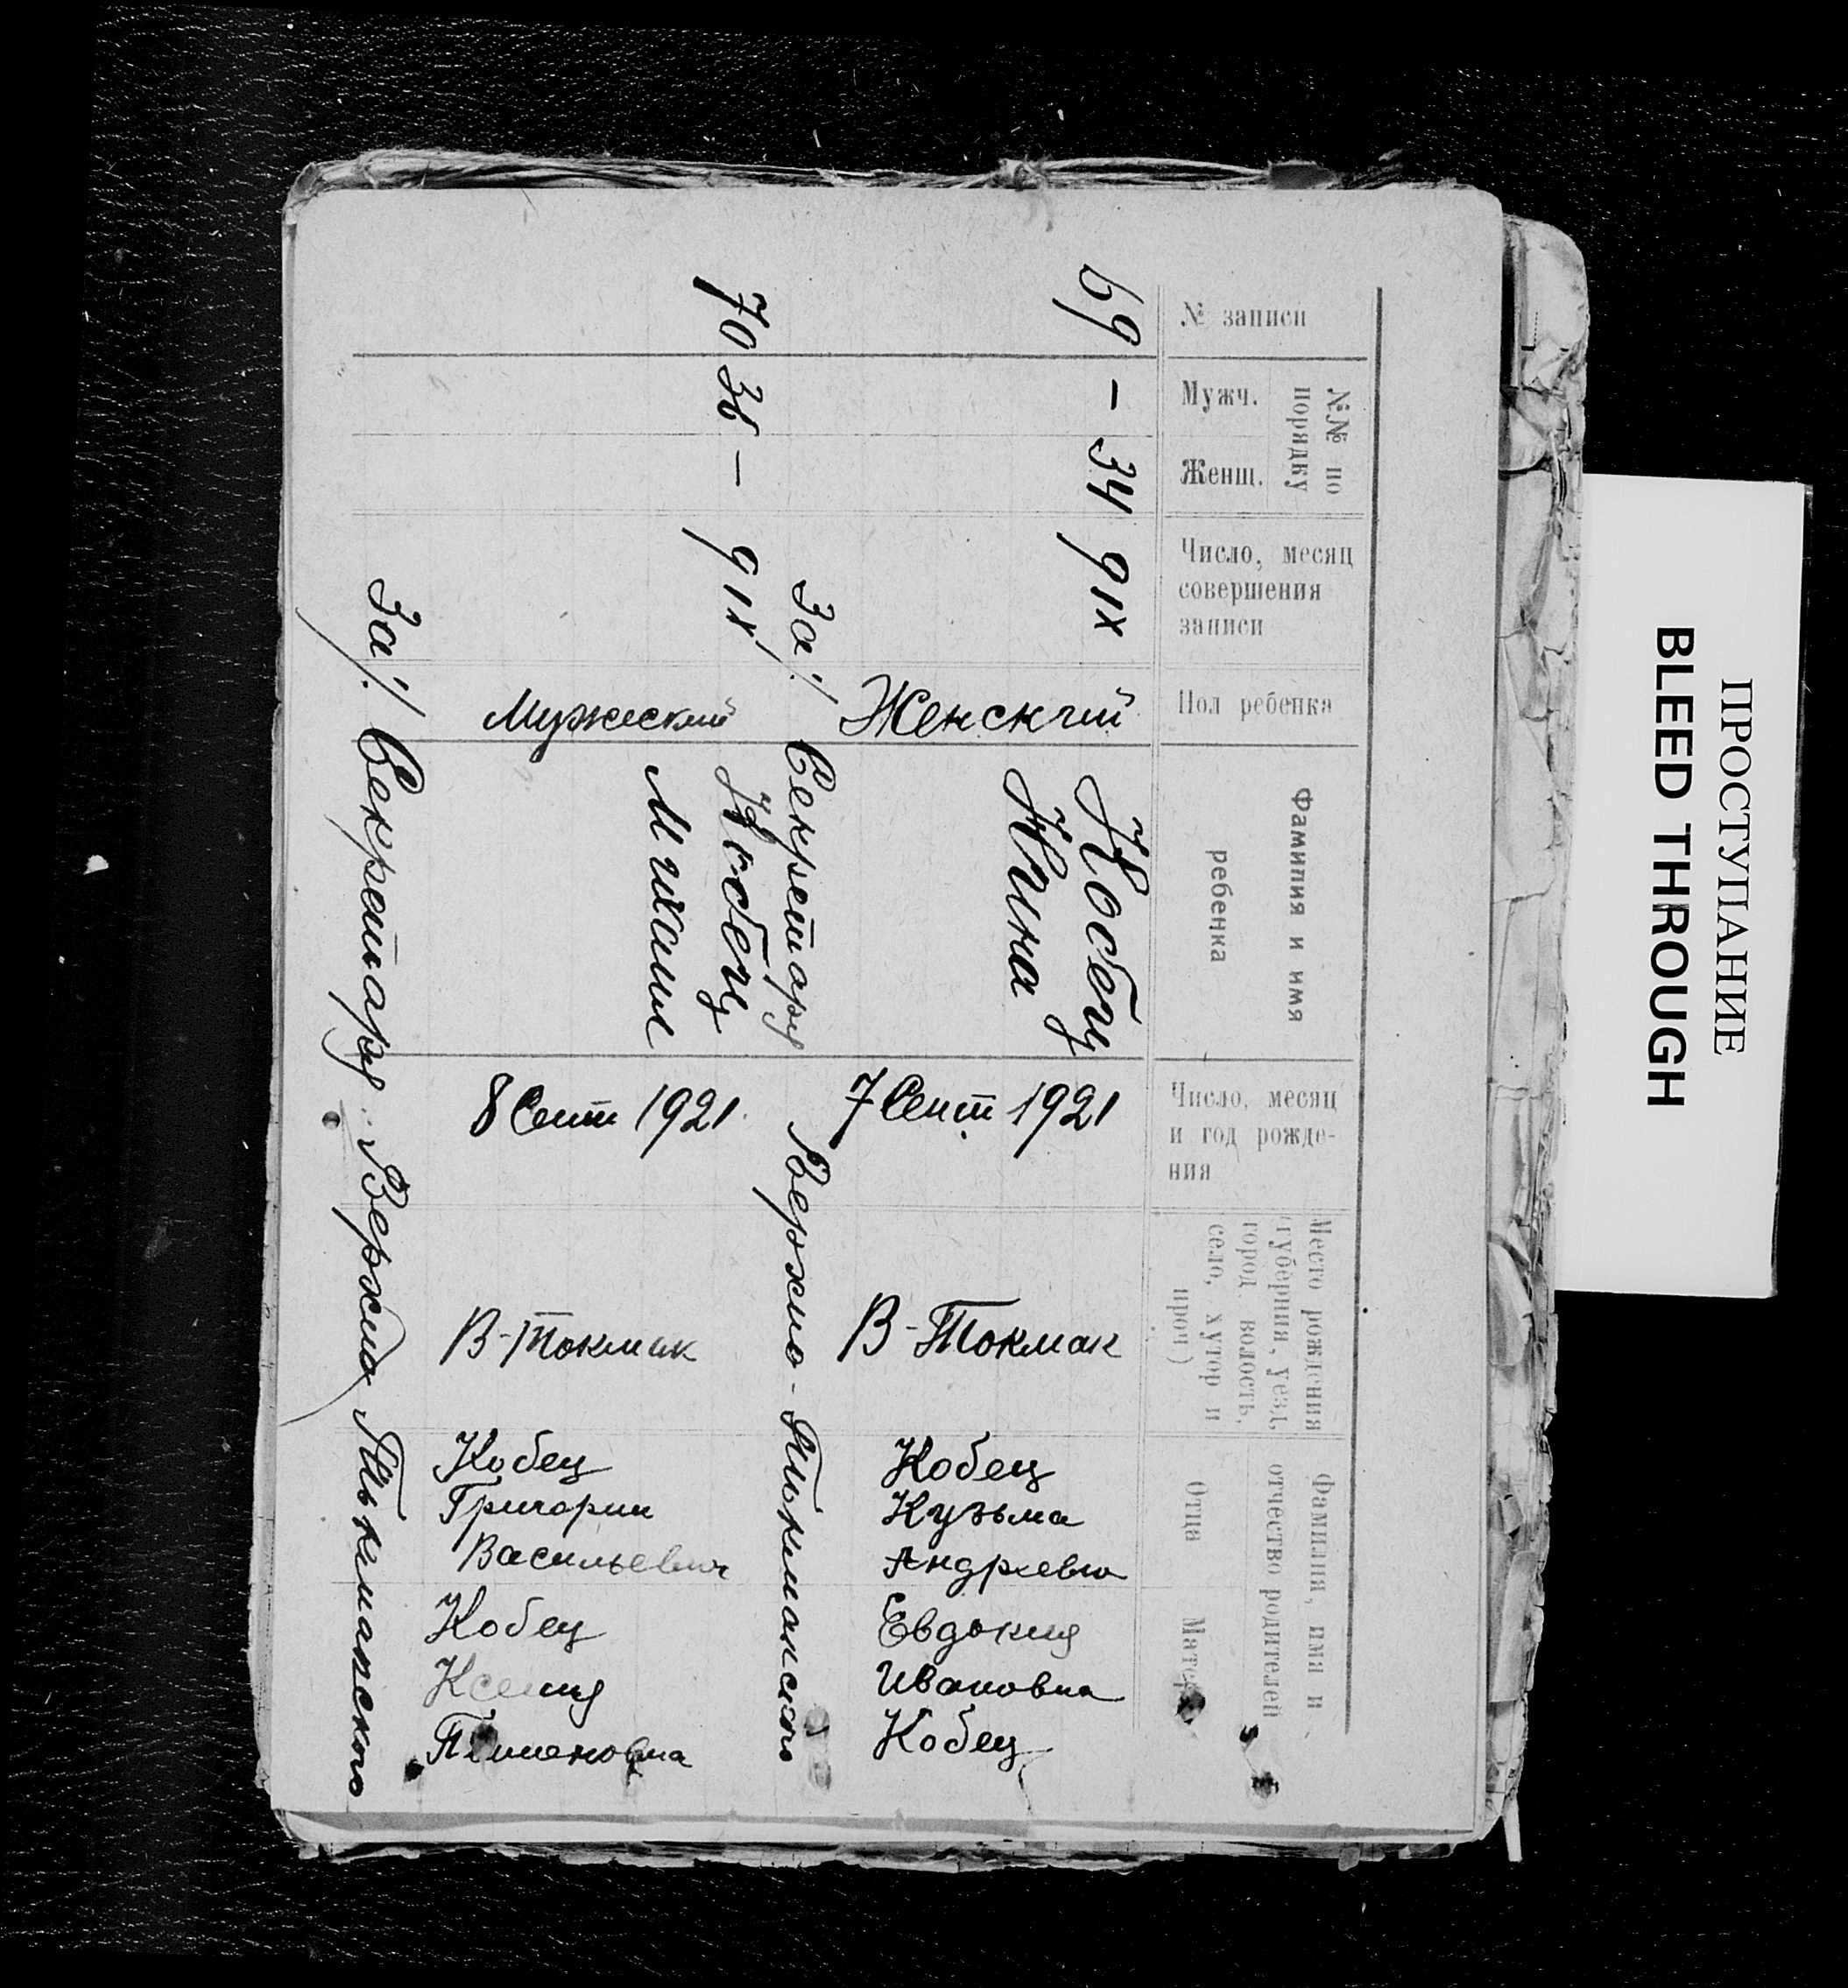 № записи
№№ по
порядку
Мужч.
Женщ.
Число, месяц
совершения
записи
Пол ребенка
Фамилия и имя
ребенка
Число, месяц
и год рожде-
ния
Место рождения
(губерния, уезд,
город, волость,
село, хутор и
проч)
Фамилия, имя и
отчество родителей
Отца
Матери
69 – 34 9 IX
Женский
Кобец
Нина
7 Сент 1921
В-Токмак
Кобец
Кузьма
Андреевич
Евдокия
Ивановна
Кобец
За/. Секретаря Верхно-Токмакского
70 36 – 9 IX
Мужеский
Кобец
Михаил
8 Сент 1921
В-Токмак
Кобец
Григории
Васильевич
Кобец
Ксения
Пименовна
За/. Секретаря Верхно Токмакского
ПРОСТУПАНИЕ
BLEED THROUGH